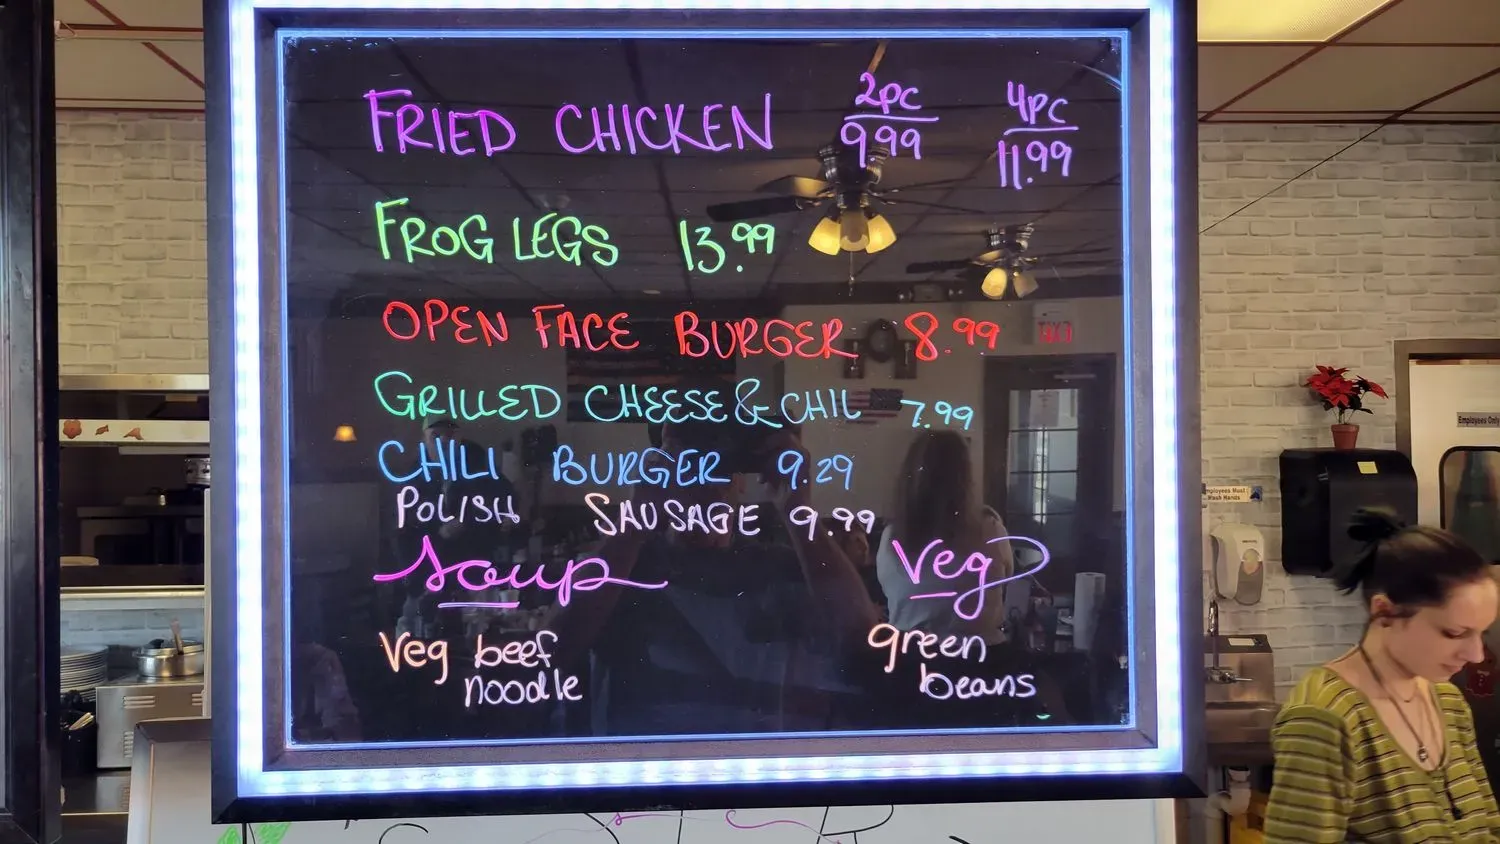 FRIED CHICKEN 2pc 9.99 4pc 11.99
FROG LEGS 13.99
OPEN FACE BURGER 8.99
GRILLED CHEESE & CHIL 7.99
CHILI BURGER 9.29
POLISH SAUSAGE 9.99
Soup Veg
Veg beef noodle
green beans
Employees Only
Employees Must
Wash Hands